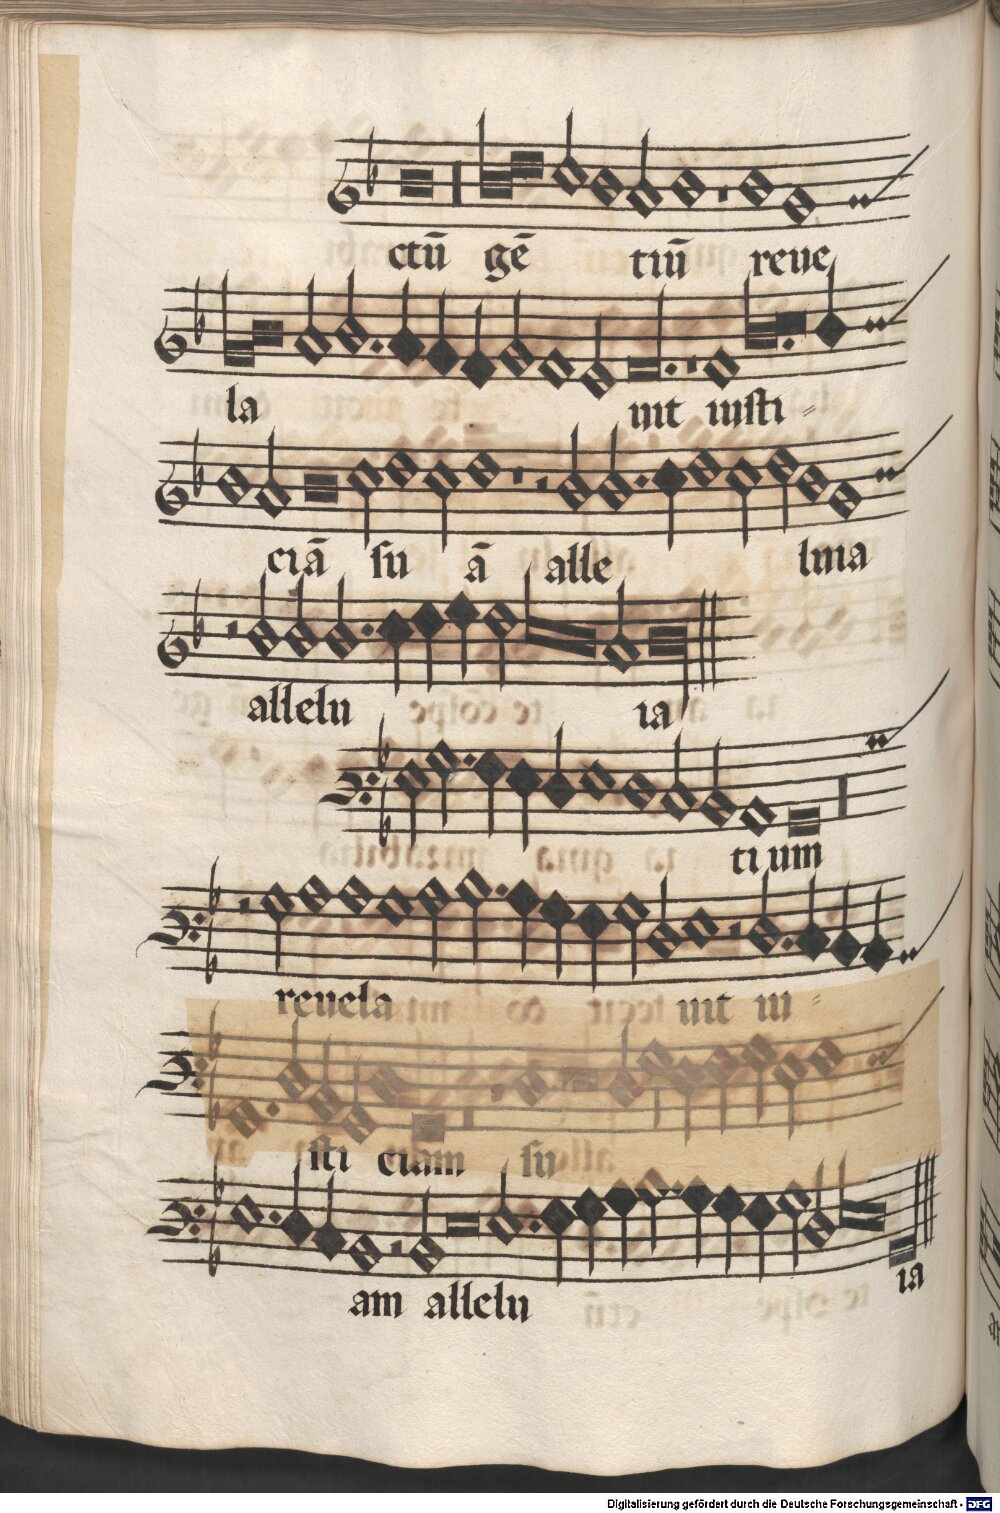 ctū gē tiū reue
la uit iusti =
ciā su ā alle luia
allelu ia
ti um
reuela uit iu =
sti ciam su
am allelu ia
Digitalisierung gefördert durch die Deutsche Forschungsgemeinschaft - DFG